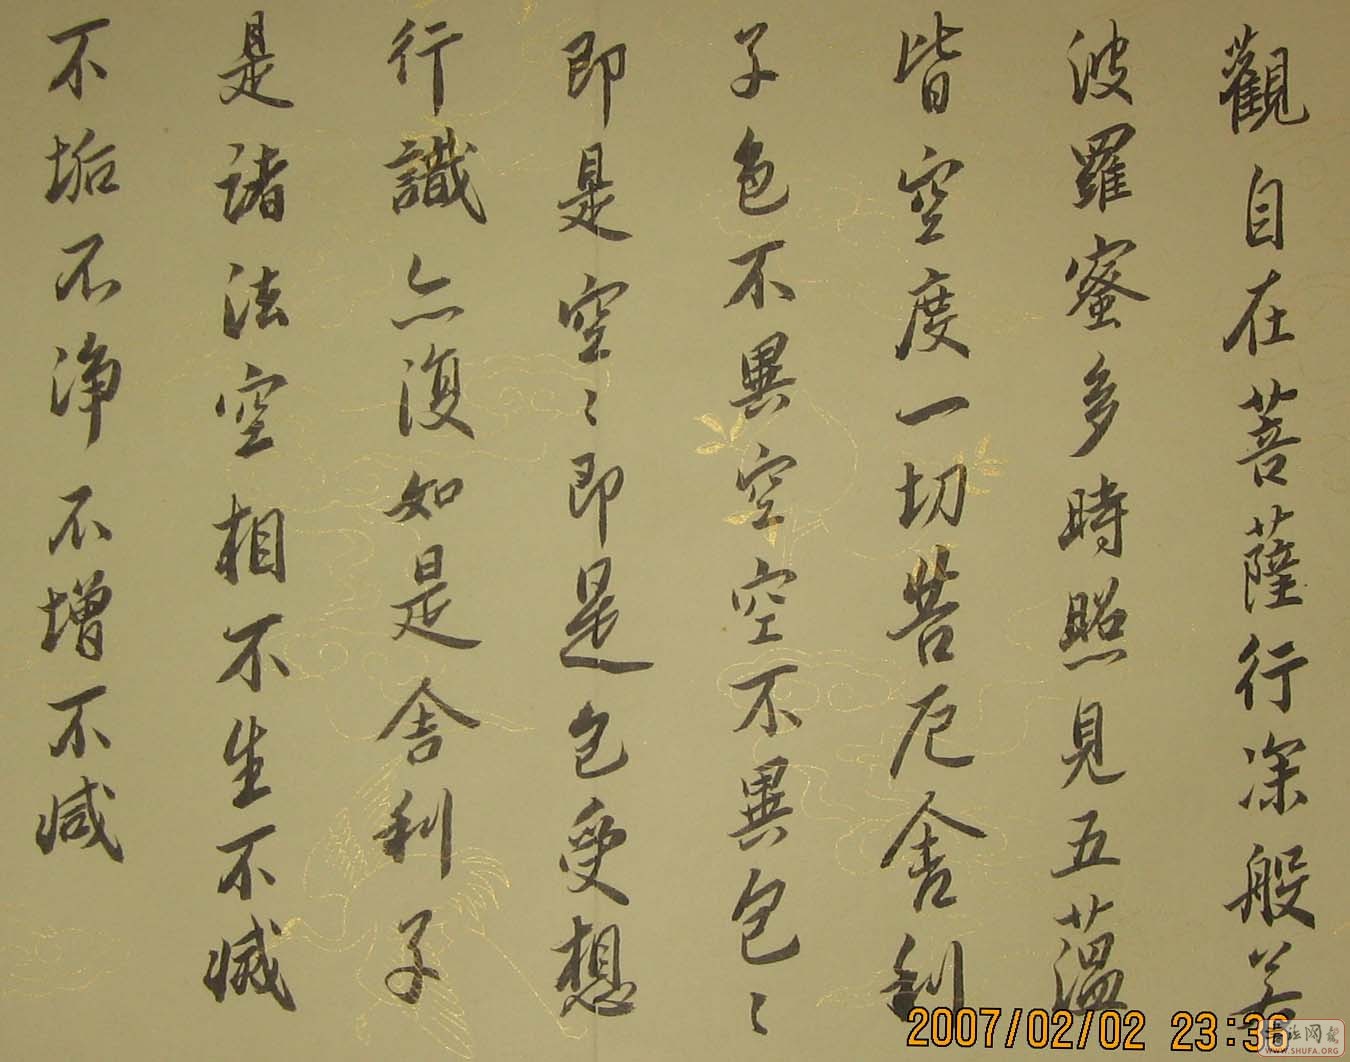 觀自在菩薩行深般若
波羅蜜多時照見五蘊
皆空度一切苦厄舍利
子色不異空空不異色〻
即是空〻即是色受想
行識亦復如是舍利子
是諸法空相不生不滅
不垢不淨不增不減
2007/02/02 23:36
書法网
WWW.SHUFA.ORG